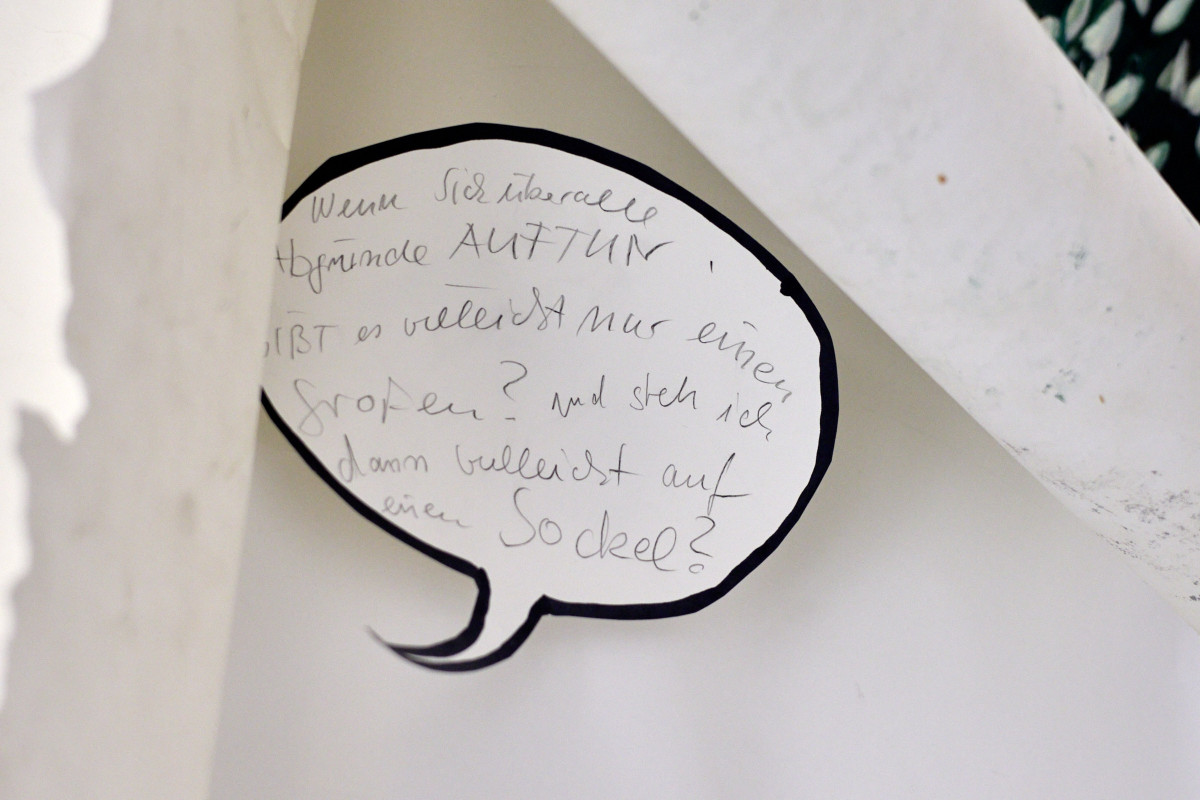 Wenn Sich überalle
Abgründe AUFTUN,
GIBT es vielleicht nur einen
Großen? und steh ich
dann vielleicht auf
einen Sockel?